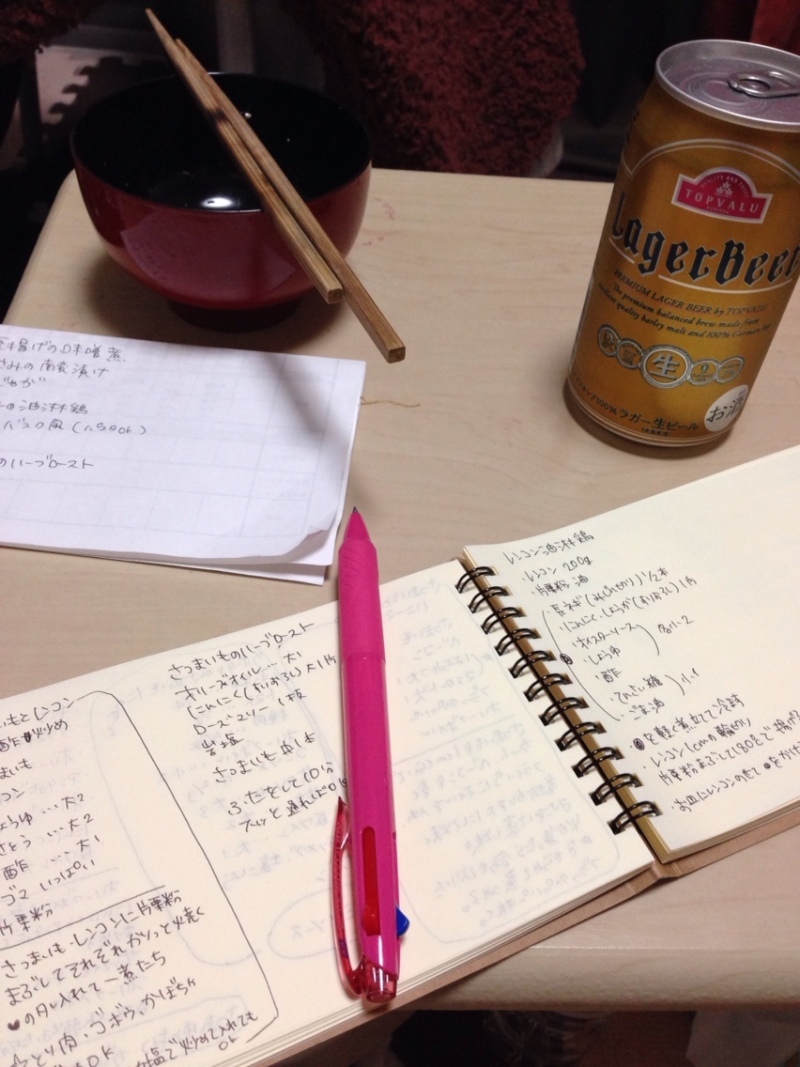 TOPVALU
LagerBeer
PREMIUM LAGER BEER by TOPVALU
The premium balanced brew made from
quality barley malt and 100% German
生
ラガー生ビール
お酒
揚げの味噌煮
さみの南蛮漬け
油淋鶏
風(ハラOK)
のハーブロースト
レンコン油淋鶏
・レンコン 200g
・片栗粉 油
・長ネギ(みじん切り)1/2本
・にんにく・しょうが(すりおろし)1片
・オイスターソース
・しょうゆ
・酢
・てんさい糖
・ごま油
各小2
小1
を軽く煮立てて冷ます
・レンコン1cmの輪切り
片栗粉まぶして180℃で揚げ
・お皿にレンコンのせて
さつまいものハーブロースト
オリーブオイル…大1
にんにく(すりおろし)大1片
ローズマリー 1枝
岩塩
さつまいも中1本
ふたをして10分
スッと通ればOK
いもとレンコン
酢炒め
まいも
コン
ょうゆ…大2
さとう…大2
酢…大1
ゴマ いっぱい
片栗粉
さつまいも・レンコンに片栗粉
まぶしてそれぞれカリッと火焼く
のタレ入れて一煮たち
とり肉、ゴボウ、かぼちゃ
OK
塩で炒めて入れても
OK